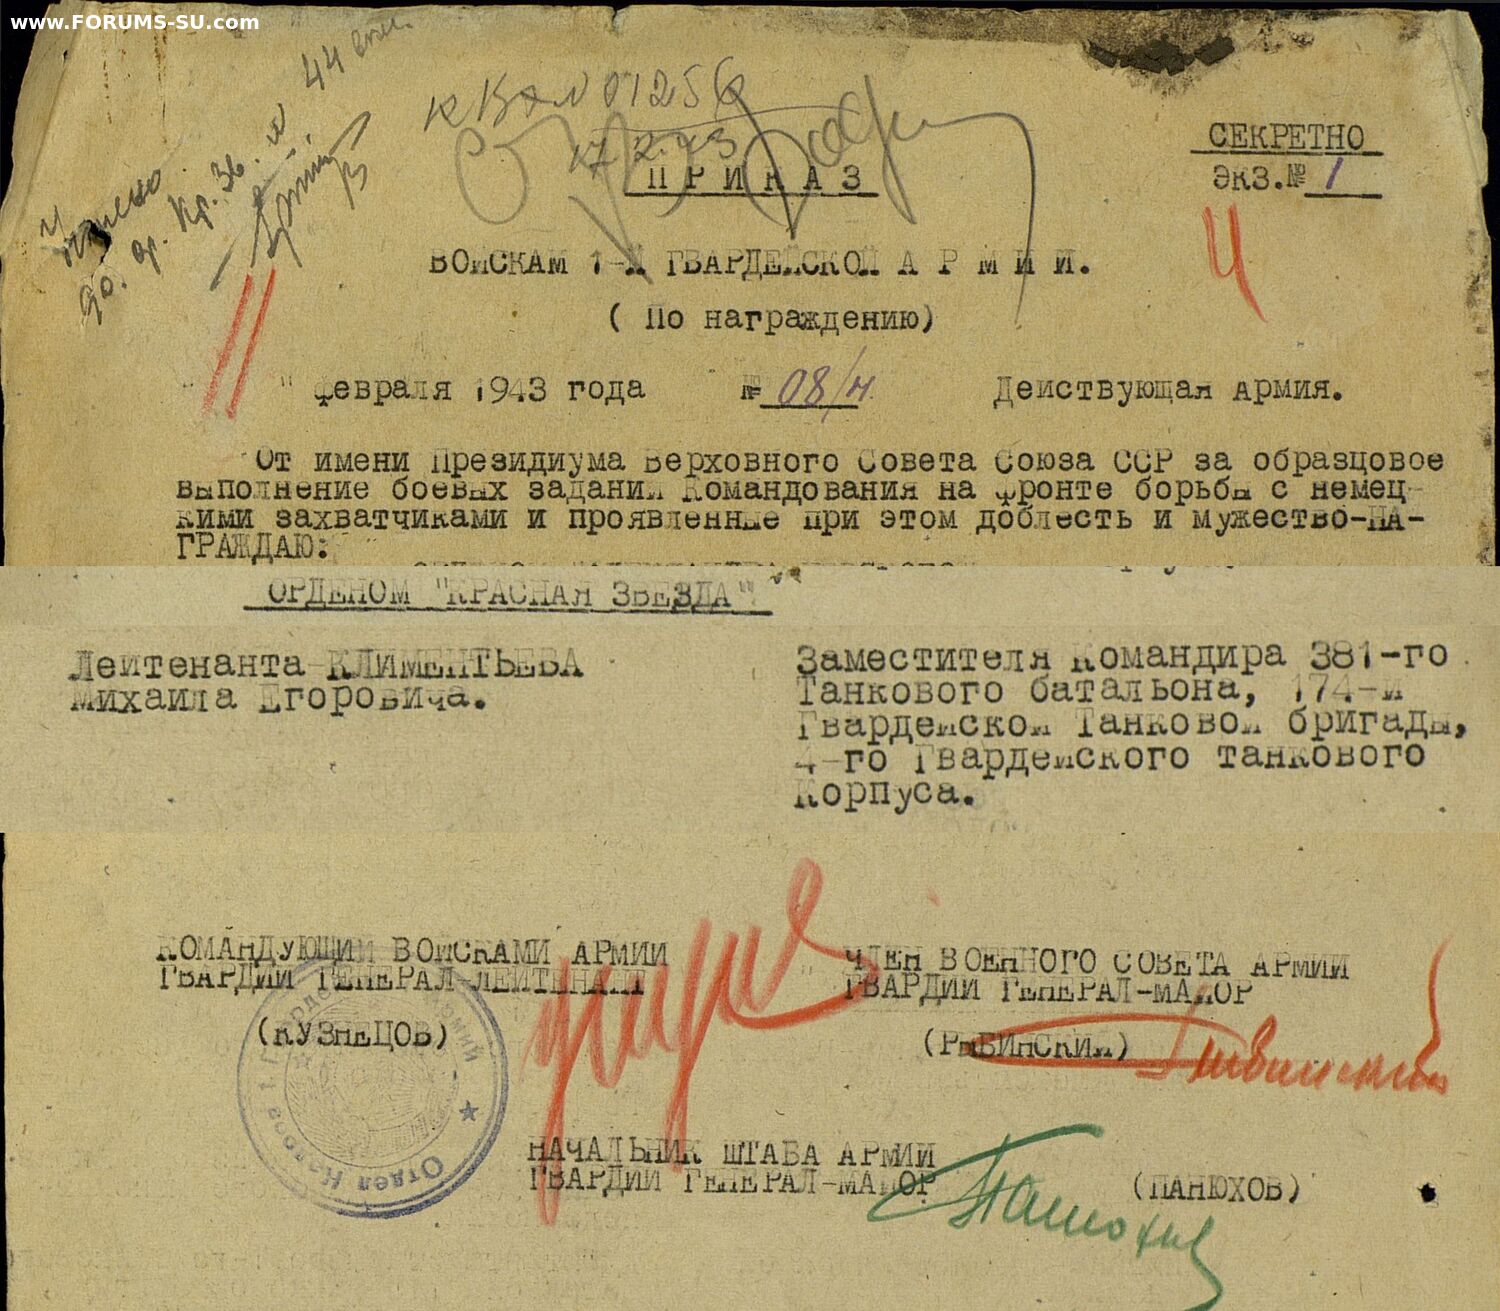 www.FORUMS-SU.com
44
к вх № 01256
17.2.43
СЕКРЕТНО
ЭКЗ.№ 1
П Р И К А З
4
ВОЙСКАМ 1-Й ГВАРДЕЙСКОЙ А Р М И И.
( По награждению)
" " февраля 1943 года № 08/н. Действующая Армия.
От имени Президиума Верховного Совета Союза ССР за образцовое
выполнение боевых заданий Командования на фронте борьбы с немец-
кими захватчиками и проявленные при этом доблесть и мужество-НА-
ГРАЖДАЮ:
ОРДЕНОМ "КРАСНАЯ ЗВЕЗДА"
Лейтенанта КЛИМЕНТЬЕВА
Михаила Егоровича.
Заместителя Командира 381-го
Танкового батальона, 174-й
Гвардейской Танковой бригады,
4-го Гвардейского танкового
Корпуса.
КОМАНДУЮЩИЙ ВОЙСКАМИ АРМИИ
ГВАРДИИ ГЕНЕРАЛ-ЛЕЙТЕНАНТ
(КУЗНЕЦОВ)
ЧЛЕН ВОЕННОГО СОВЕТА АРМИИ
ГВАРДИИ ГЕНЕРАЛ-МАЙОР
(РЫБИНСКИЙ)
Отдел
НАЧАЛЬНИК ШТАБА АРМИИ
ГВАРДИИ ГЕНЕРАЛ-МАЙОР
(ПАНЮХОВ)